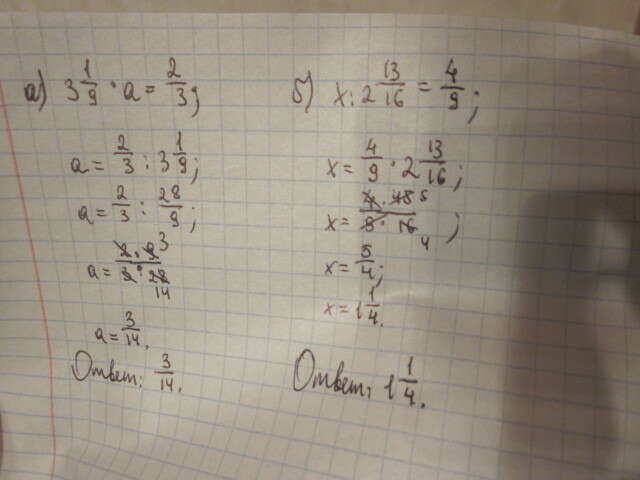 а) 3 1/9 · a = 2/3;
a = 2/3 : 3 1/9;
a = 2/3 : 28/9;
a = 2 · 9 3 / 3 · 28 14
a = 3/14.
Ответ: 3/14.
б) x : 2 13/16 = 4/9;
x = 4/9 · 2 13/16;
x = 4 · 45 5 / 9 · 16 4;
x = 5/4;
x = 1 1/4.
Ответ: 1 1/4.